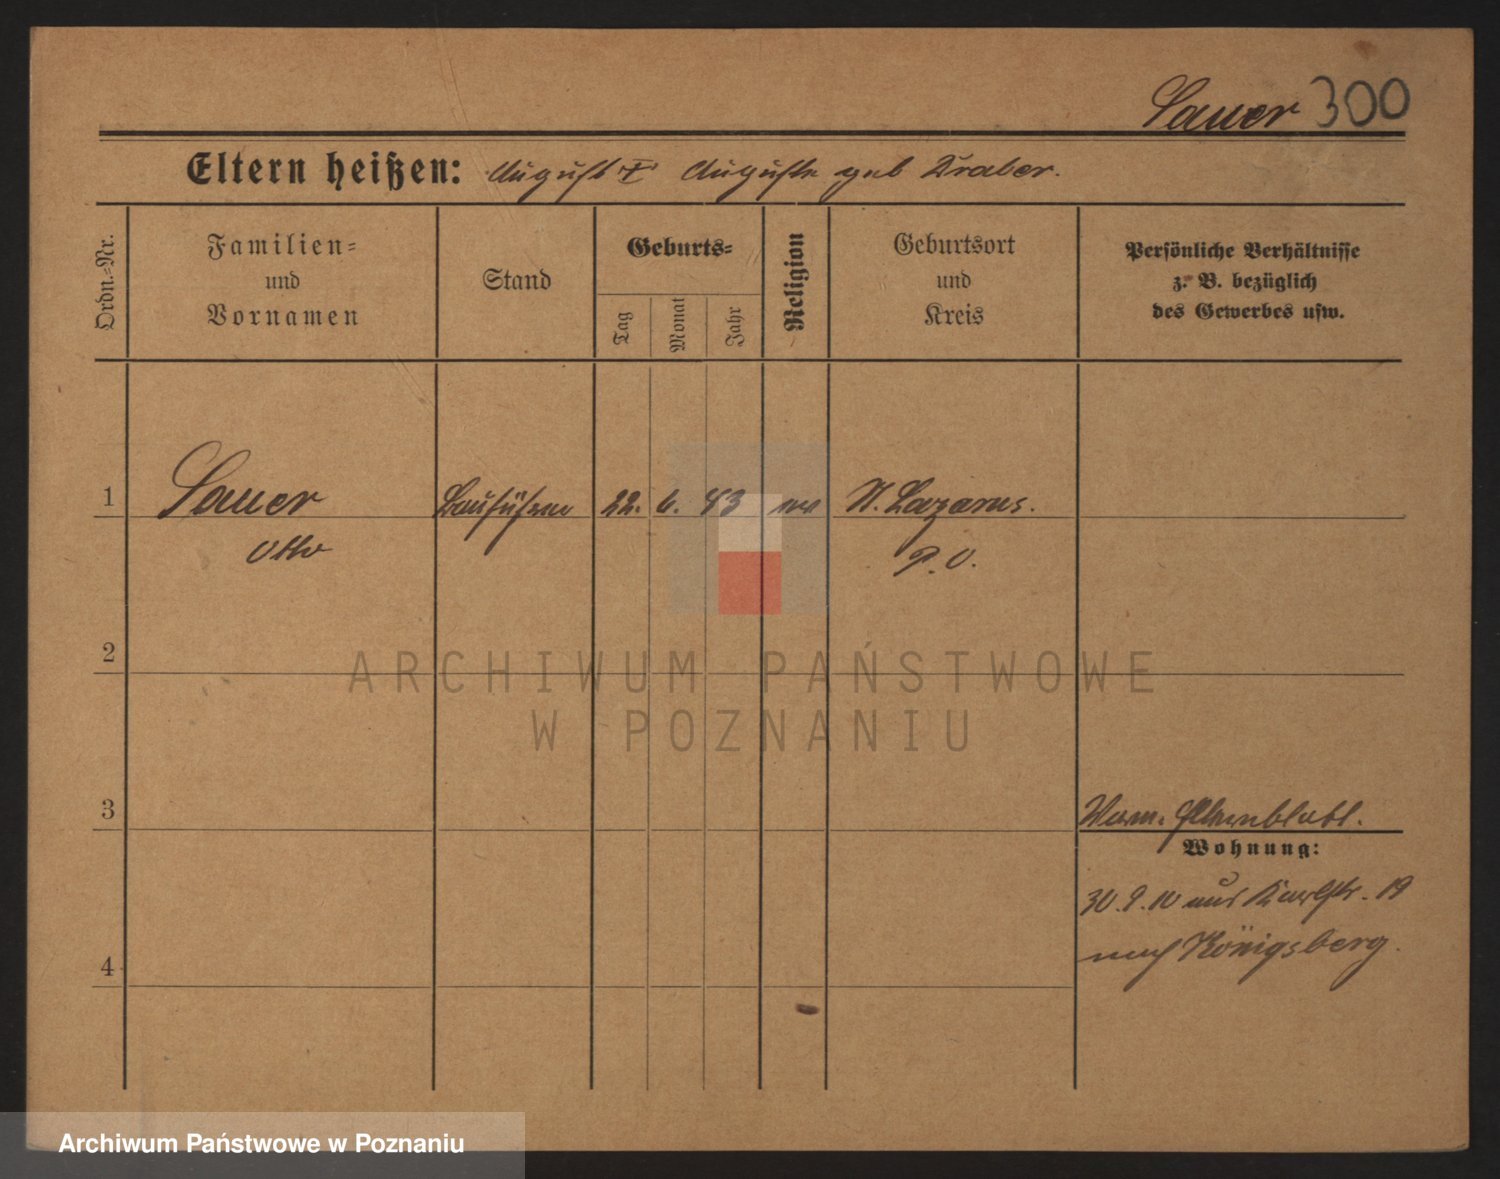 Sauer 300
Eltern heißen: August u Auguste geb Traber.
Ordn.=Nr.
Familien=
und
Vornamen
Stand
Geburts=
Tag
Monat
Jahr
Religion
Geburtsort
und
Kreis
Persönliche Verhältnisse
z. B. bezüglich
des Gewerbes usw.
1 Sauer 22. 6. 83 ev St. Lazarus.
Otto P. O.
2
ARCHIWUM PAŃSTWOWE
W POZNANIU
3
Wohnung:
30. 9. 10 aus Karlstr. 19
nach Königsberg.
4
Archiwum Państwowe w Poznaniu